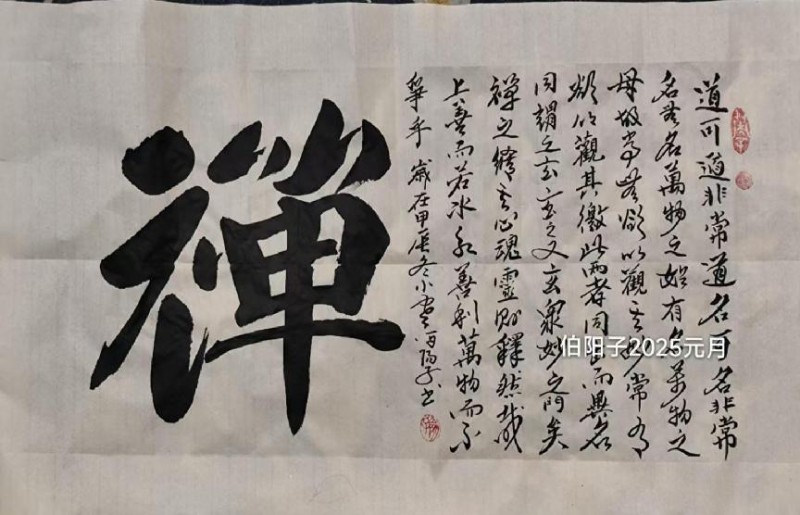 道可道非常道名可名非常
名無名萬物之始有名萬物之
母故常無欲以觀其妙常有
欲以觀其徼此兩者同出而異名
同謂之玄玄之又玄衆妙之門矣
禪之其心魂靈則釋然哉
上善而若水水善利萬物而不
爭乎 歲在甲辰冬小 伯陽子書
禪
伯阳子2025元月